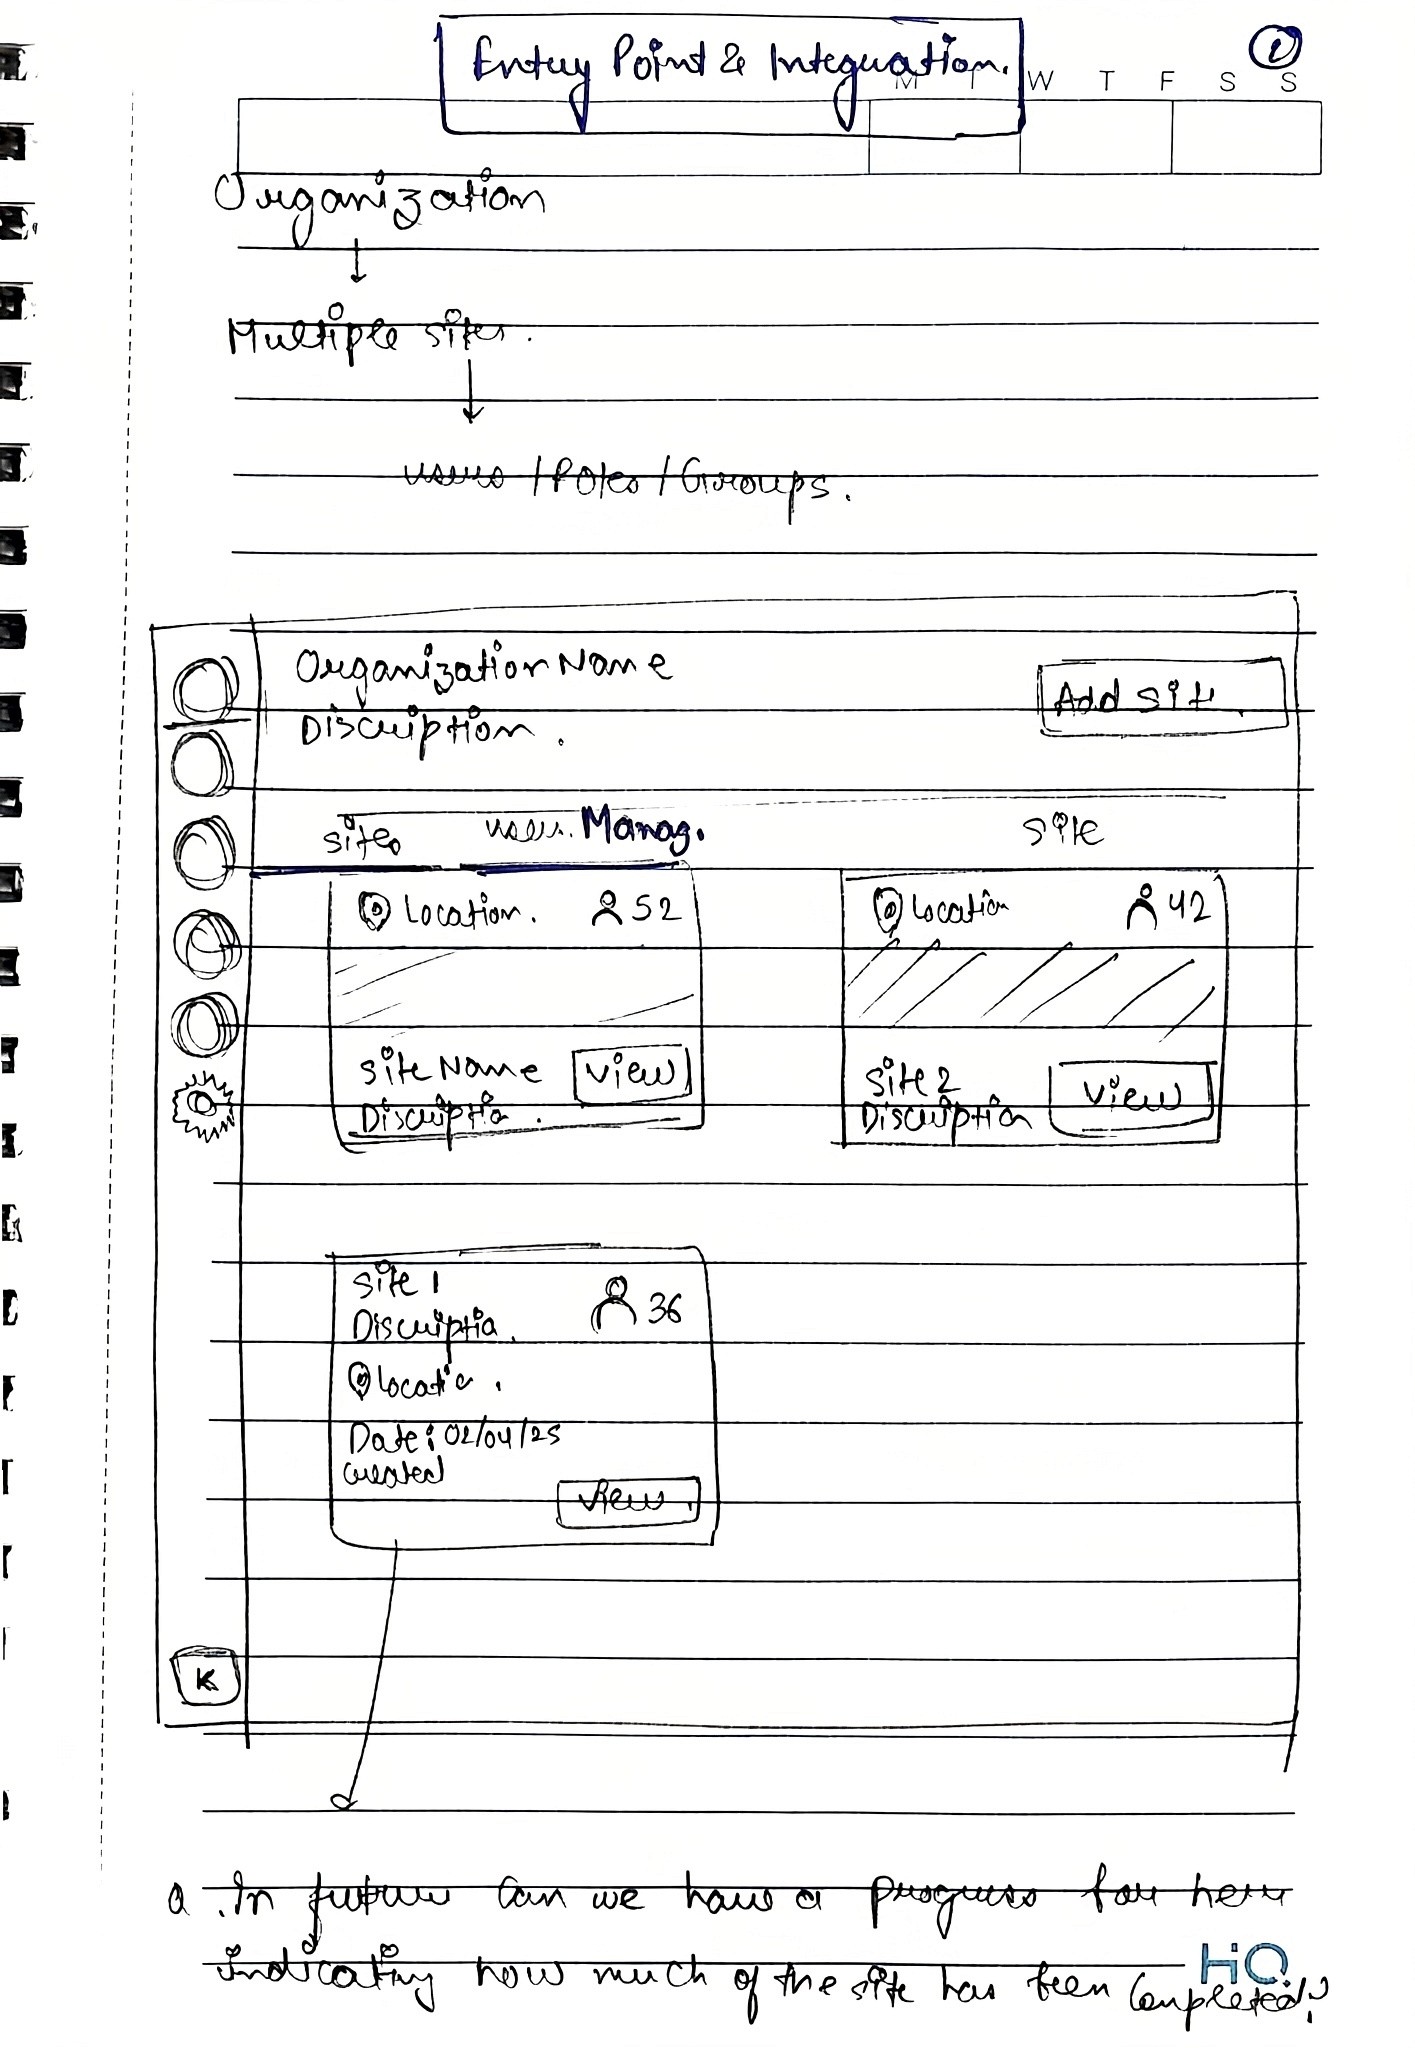 Entry Point & Integration.
1
M T W T F S S
Organization
Multiple sites.
users / Roles / Groups.
Organization Name
Add site.
Discription.
sites
user. Manag.
site
Location. 52
Location 42
Site Name
View
Discriptio.
Site 2
View
Discription
Site 1
Discriptio.
36
Locatio.
Date: 02/04/25
created
View.
K
Q. In future can we have a progress bar here
indicating how much of the site has been completed?
HQ